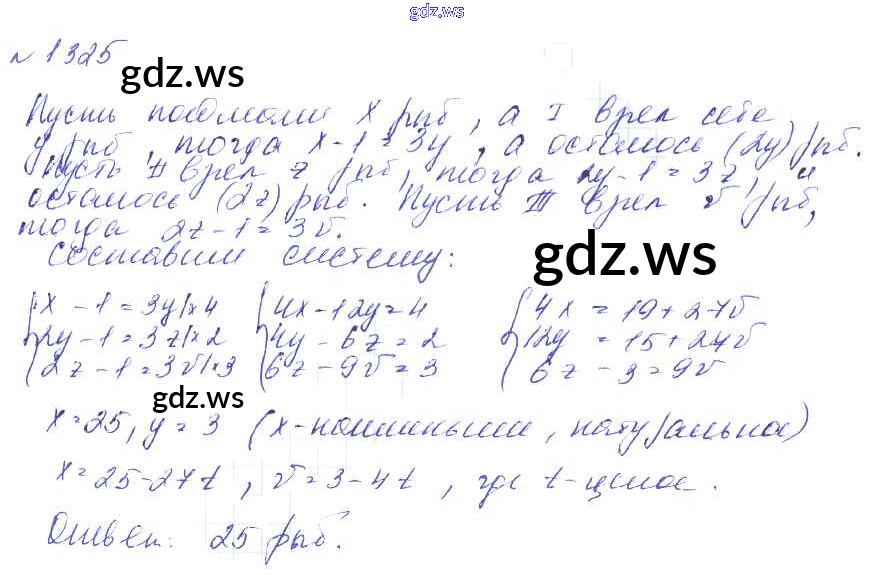 gdz.ws
№ 1325
gdz.ws
Пусть поймали x рыб, а I взял себе
y рыб, тогда x - 1 = 3y, а осталось (2y) рыб.
Пусть II взял z рыб, тогда 2y - 1 = 3z, и
осталось (2z) рыб. Пусть III взял v рыб,
тогда 2z - 1 = 3v.
gdz.ws
Составим систему:
{x - 1 = 3y |×4 {4x - 12y = 4 {4x = 19 + 27v
2y - 1 = 3z |×2 4y - 6z = 2 12y = 15 + 27v
2z - 1 = 3v |×3 6z - 9v = 3 6z - 3 = 9v
gdz.ws
x = 25, y = 3 (x - наименьшее, натуральное)
x = 25 - 27t, v = 3 - 4t, где t - целое.
Ответ: 25 рыб.